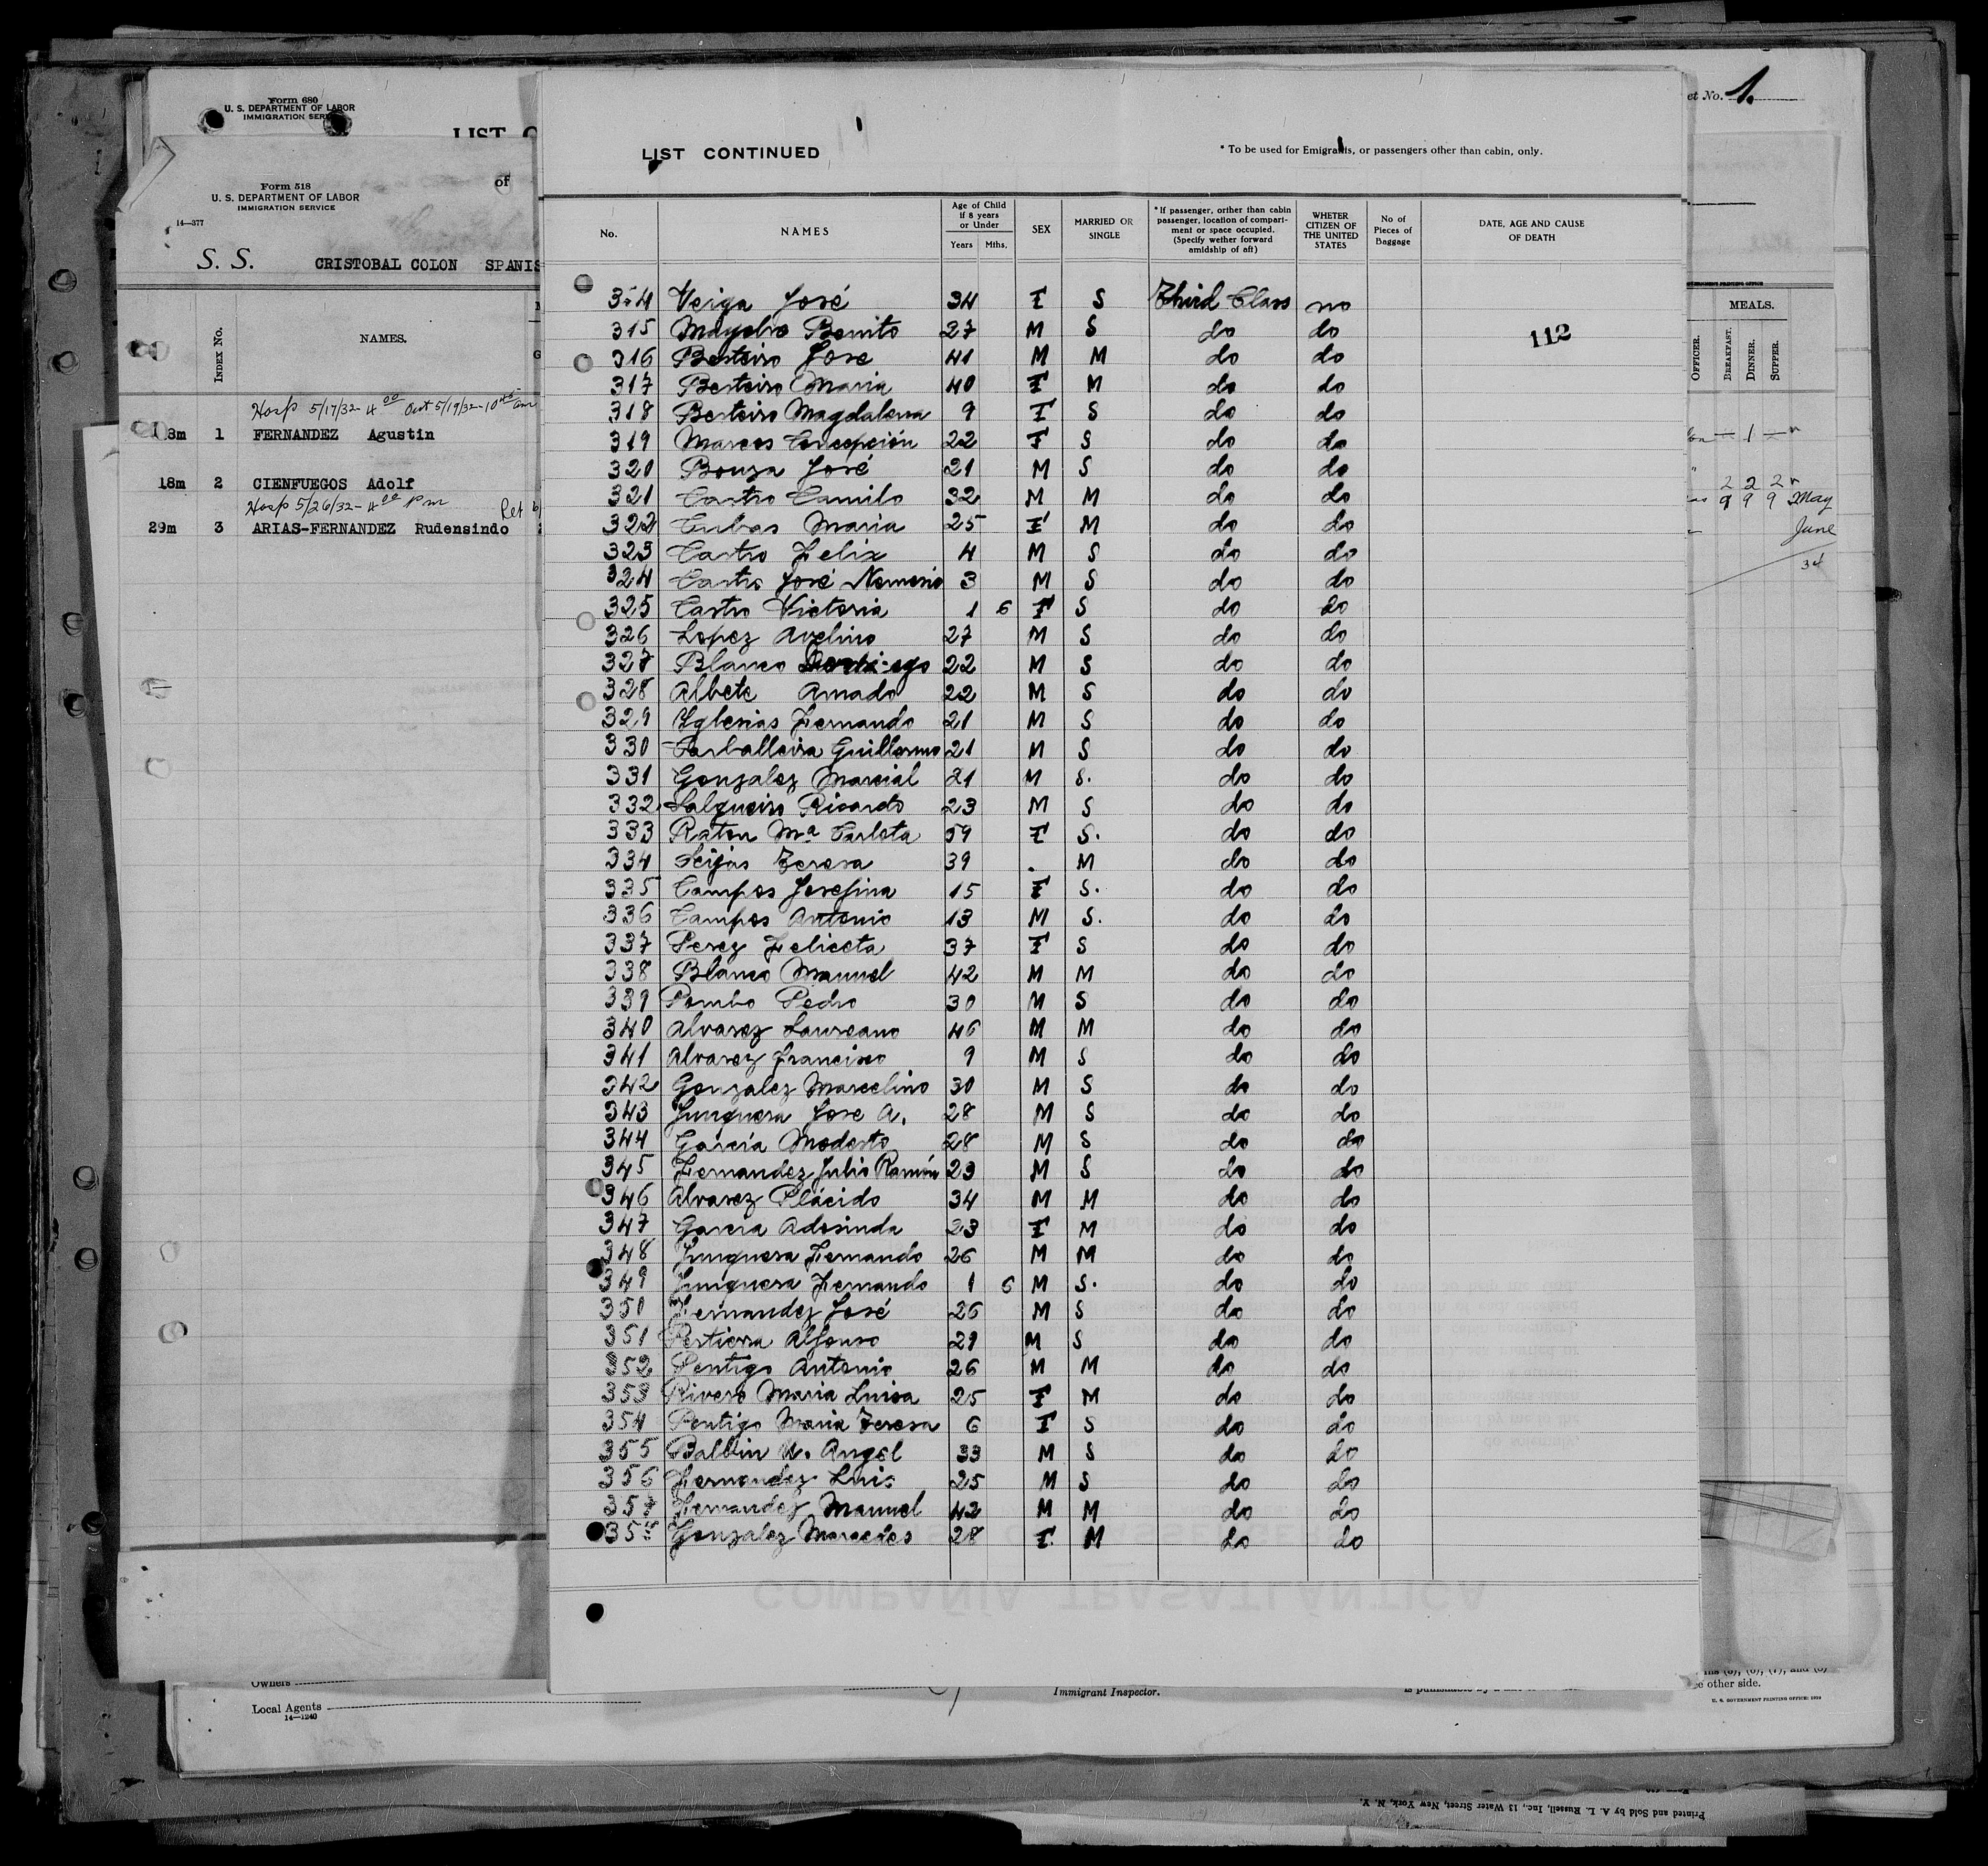 Form 680
U. S. DEPARTMENT OF LABOR
IMMIGRATION SER
LIST O
et No. 1.
Form 518
U. S. DEPARTMENT OF LABOR
IMMIGRATION SERVICE
14—377
of
S. S. CRISTOBAL COLON SPANIS
INDEX No.
NAMES.
Hosp 5/17/32- 4 00 Out 5/19/32- 10 45 am
18m 1 FERNANDEZ Agustin
18m 2 CIENFUEGOS Adolf
Hosp 5/26/32- 4 00 P m
29m 3 ARIAS-FERNANDEZ Rudensindo
LIST CONTINUED
* To be used for Emigrants, or passengers other than cabin, only.
No. NAMES Age of Child if 8 years or Under Years Mths. SEX MARRIED OR SINGLE * If passenger, orither than cabin passenger, location of compartiment or space occupied. (Specify wether forward amidship of aft) WHETER CITIZEN OF THE UNITED STATES No of Pieces of Baggage DATE, AGE AND CAUSE OF DEATH
314 Veiga José 34 F S Third Class no
315 Benito 27 M S do do
112
316 Besteiro Jose 41 M M do do
317 Besteiro Maria 40 F M do do
318 Besteiro Magdalena 9 F S do do
319 Marcos Concepción 22 F S do do
320 Bouza José 21 M S do do
321 Castro Camilo 32 M M do do
322 Cubas Maria 25 F M do do
323 Castro Felix 4 M S do do
324 Castro José Nemesio 3 M S do do
325 Castro Victoria 1 6 F S do do
326 Lopez Avelino 27 M S do do
327 Blanco 22 M S do do
328 Albete Amado 22 M S do do
329 Yglesias Fernando 21 M S do do
330 Carballeira Guillermo 21 M S do do
331 Gonzalez Marcial 21 M S. do do
332 Salgueiro Ricardo 23 M S do do
333 Raton Mª Carlota 59 F S. do do
334 Seijas Teresa 39 . M do do
335 Campos Josefina 15 F S. do do
336 Campos Antonio 13 M S. do do
337 Perez Feliceta 37 F S do do
338 Blanco Manuel 42 M M do do
339 Pombo Pedro 30 M S do do
340 Alvarez Laureano 46 M M do do
341 Alvarez Francisco 9 M S do do
342 Gonzalez Marcelino 30 M S do do
343 Junquera Jose A. 28 M S do do
344 García Modesto 28 M S do do
345 Fernandez Julio Ramón 23 M S do do
346 Alvarez Plácido 34 M M do do
347 Garcia Adosinda 23 F M do do
348 Junquera Fernando 26 M M do do
349 Junquera Fernando 1 6 M S. do do
350 Fernandez José 26 M S do do
351 Pertierra Alfonso 29 M S do do
352 Pentigo Antonio 26 M M do do
353 Rivero Maria Luisa 25 F M do do
354 Pentigo Maria Teresa 6 F S do do
355 Balbin Angel 33 M S do do
356 Fernandez Luis 25 M S do do
357 Fernandez Manuel 42 M M do do
358 Gonzalez Mercedes 28 F. M do do
COMPAÑÍA TRASATLÁNTICA
MEALS.
OFFICER.
BREAKFAST.
DINNER.
SUPPER.
2 2 2
9 9 9 May
June
Owners
Local Agents
14—1240
Immigrant Inspector.
other side.
U. S. GOVERNMENT PRINTING OFFICE: 1929
Printed and Sold by A. L. Russell, Inc., 13 Water Street, New York, N. Y.